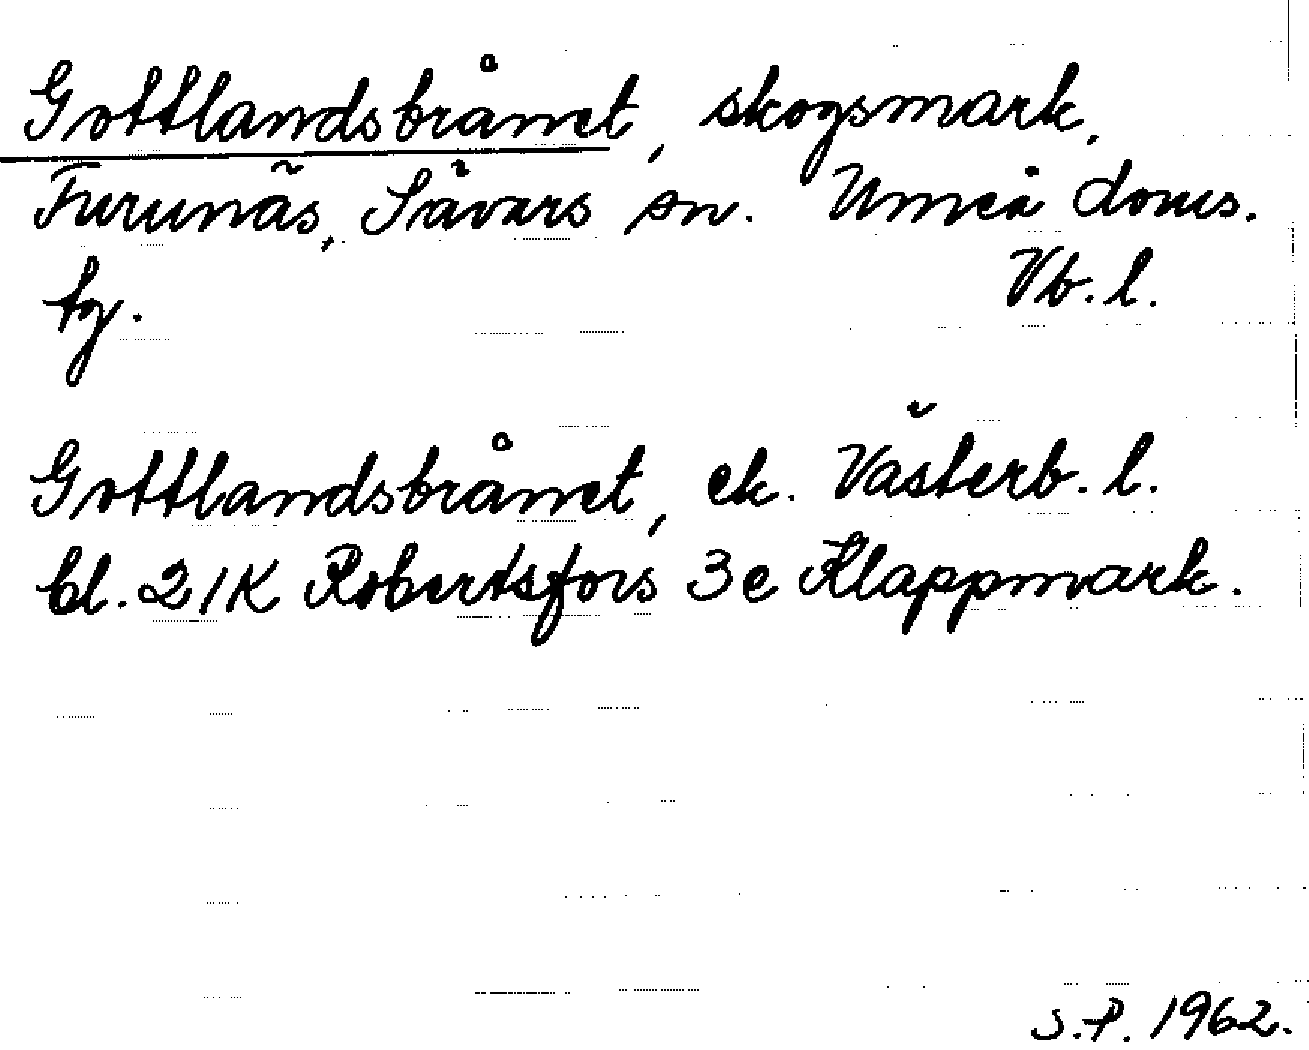 Gottlandsbrånet, skogsmark.
Furunäs, Sävars sn. Umeå doms.
by. Vb. l.
Gottlandsbrånet, ek. Västerb. l.
bl. 21K Robertsfors 3e Klappmark.
S.P. 1962.